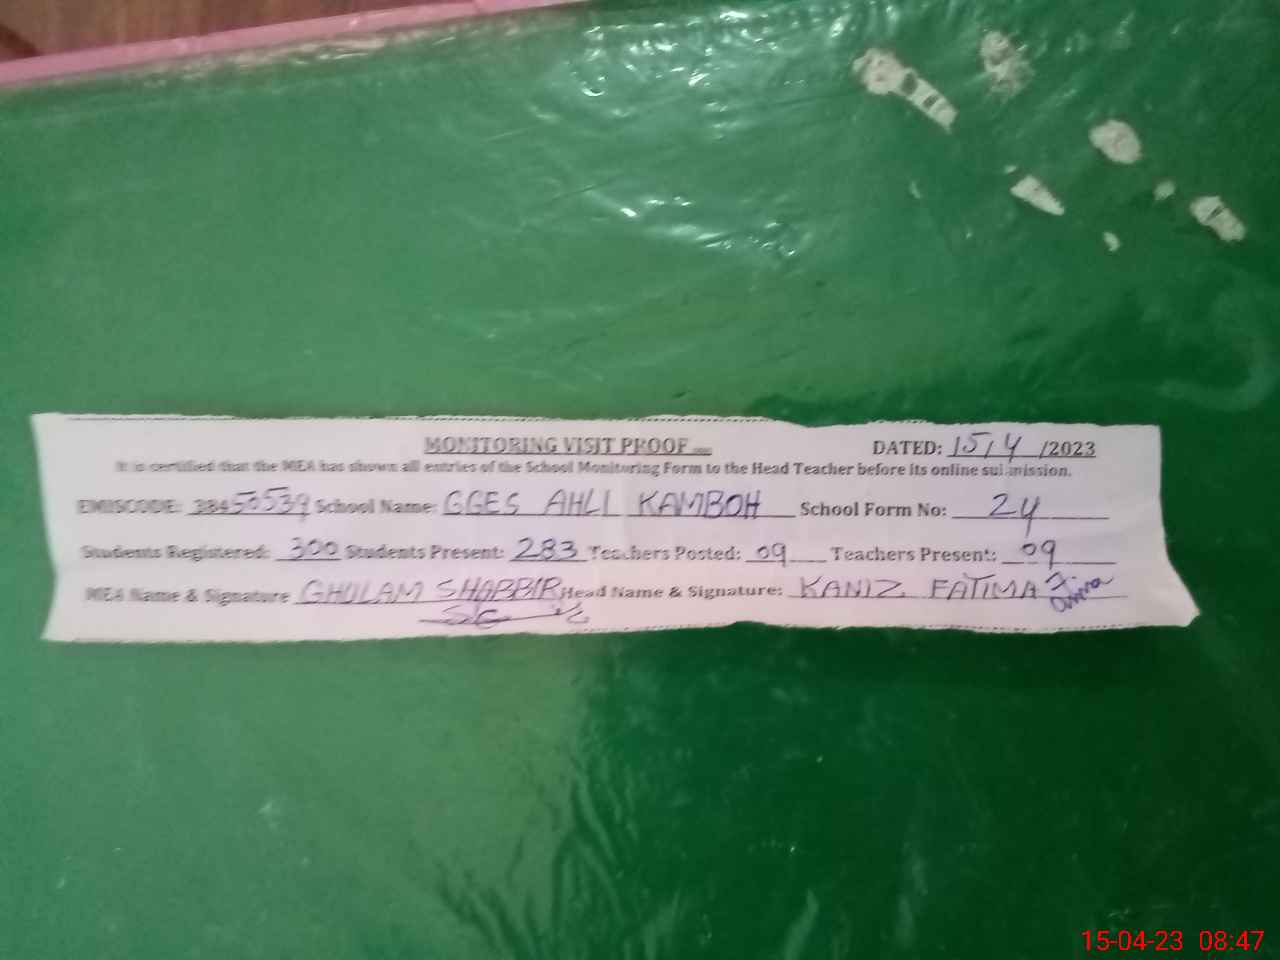 MONITORING VISIT PROOF
DATED: 15/4/2023
It is certified that the MEA has shown all entries of the School Monitoring Form to the Head Teacher before its online submission.
EMISCODE: 38450539 School Name: GGES AHLI KAMBOH School Form No: 24
Students Registered: 300 Students Present: 283 Teachers Posted: 09 Teachers Present: 09
MEA Name & Signature GHULAM SHABBIR Head Name & Signature: KANIZ FATIMA
15-04-23 08:47